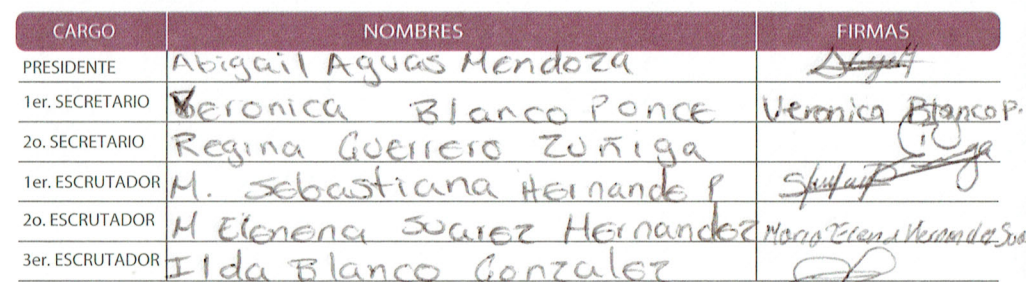 CARGO NOMBRES FIRMAS
PRESIDENTE Abigail Aguas Mendoza
1er. SECRETARIO Veronica Blanco Ponce Veronica Blanco P.
2o. SECRETARIO Regina Guerrero Zuñiga
1er. ESCRUTADOR M. Sebastiana Hernande P
2o. ESCRUTADOR M Elenena Suarez Hernandez
3er. ESCRUTADOR Ilda Blanco Gonzalez